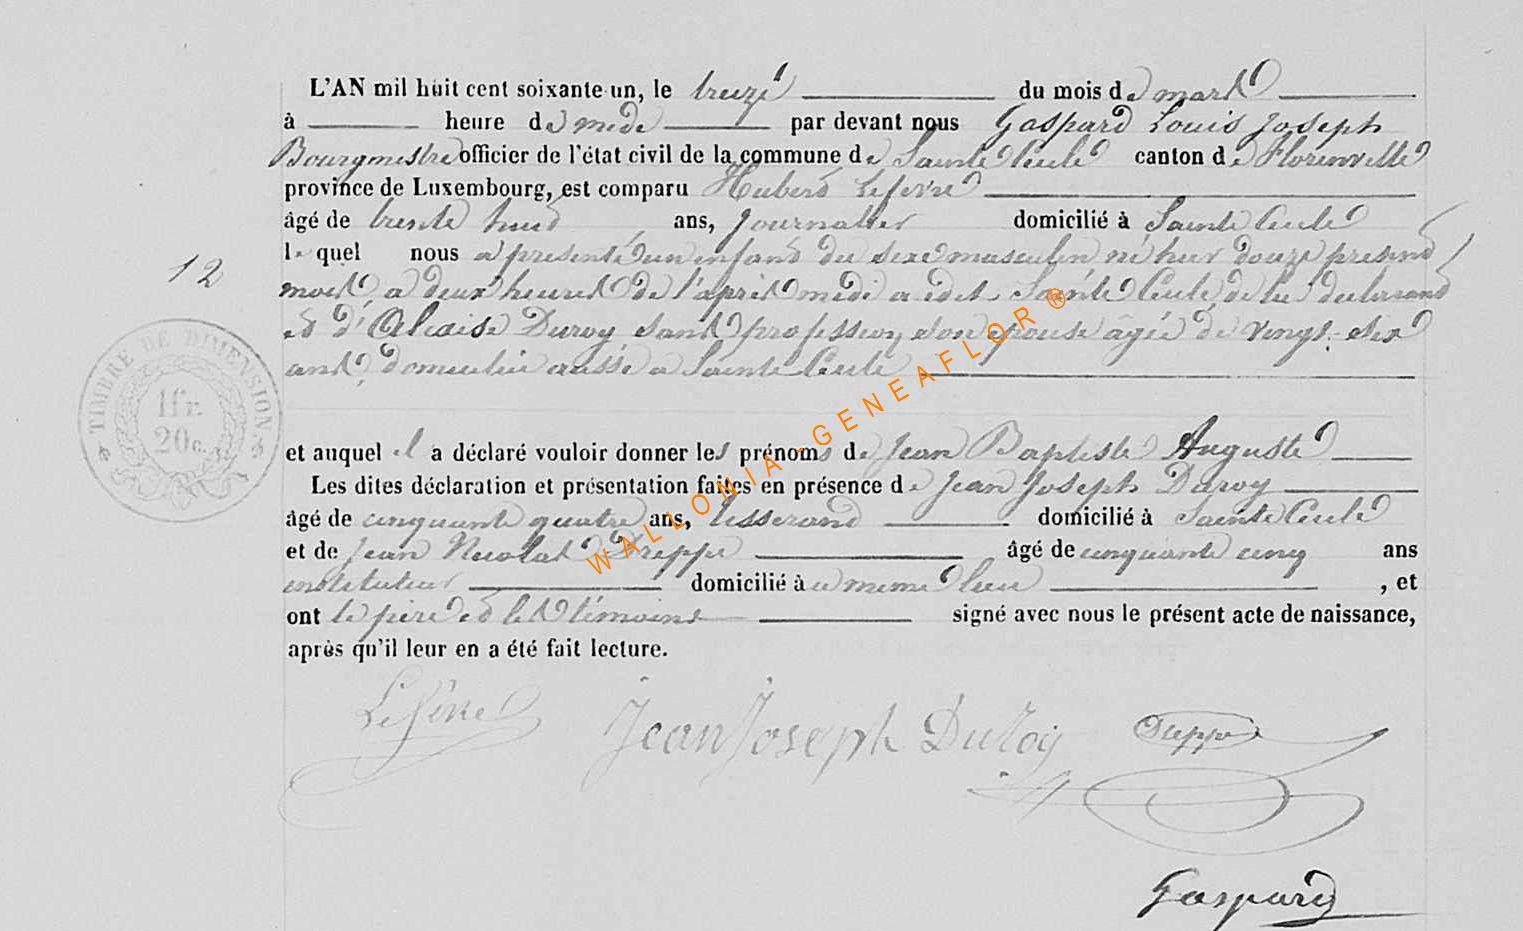 L'AN mil huit cent soixante-un, le treize du mois de mars
à heure de midi par devant nous Gaspard Louis Joseph
Bourgmestre officier de l'état civil de la commune de Sainte Cecile canton de Florenville
province de Luxembourg, est comparu Hubert Lefevre
âgé de trente huit ans, journalier domicilié à Sainte Cecile
12
le quel nous a presenté un enfant du sexe masculin né hier douze present
mois, a deux heures de l'après midi a Sainte Cecile de lui declarant
et d' Duroy sans profession son epouse âgée de vingt-six
ans, domiciliée aussi a Sainte Cecile
TIMBRE DE DIMENSION
1fr.
20c.
et auquel il a déclaré vouloir donner les prénoms de Jean Baptiste Auguste
Les dites déclaration et présentation faites en présence de Jean Joseph Duroy
âgé de cinquante quatre ans, tisserand domicilié à Sainte Cecile
et de Jean Nicolas Dreppe âgé de cinquante cinq ans
instituteur domicilié à u meme lieu , et
ont le père et les témoins signé avec nous le présent acte de naissance,
après qu'il leur en a été fait lecture.
Lefevre Jean Joseph Duroy Dreppe
Gaspard
WALLONIA - GENEAFLOR ®